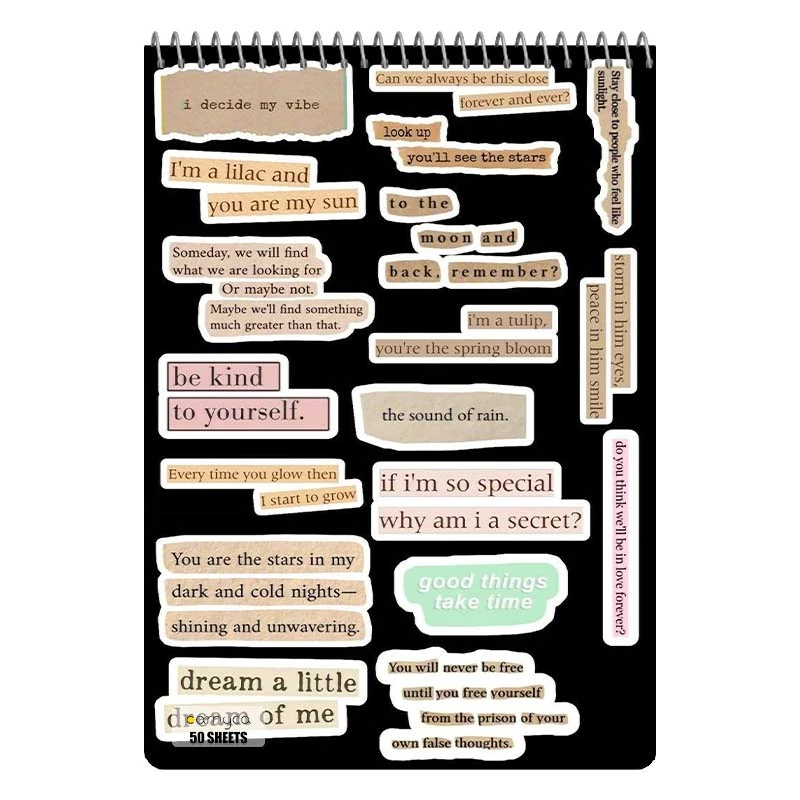 i decide my vibe
I'm a lilac and
you are my sun
Someday, we will find
what we are looking for
Or maybe not.
Maybe we'll find something
much greater than that.
be kind
to yourself.
Every time you glow then
I start to grow
You are the stars in my
dark and cold nights—
shining and unwavering.
dream a little
dream of me
50 SHEETS
Can we always be this close
forever and ever?
look up
you'll see the stars
to the
moon and
back, remember?
i'm a tulip,
you're the spring bloom
the sound of rain.
if i'm so special
why am i a secret?
good things
take time
You will never be free
until you free yourself
from the prison of your
own false thoughts.
Stay close to people who feel like
sunlight.
storm in him eyes,
peace in him smile
do you think we'll be in love forever?